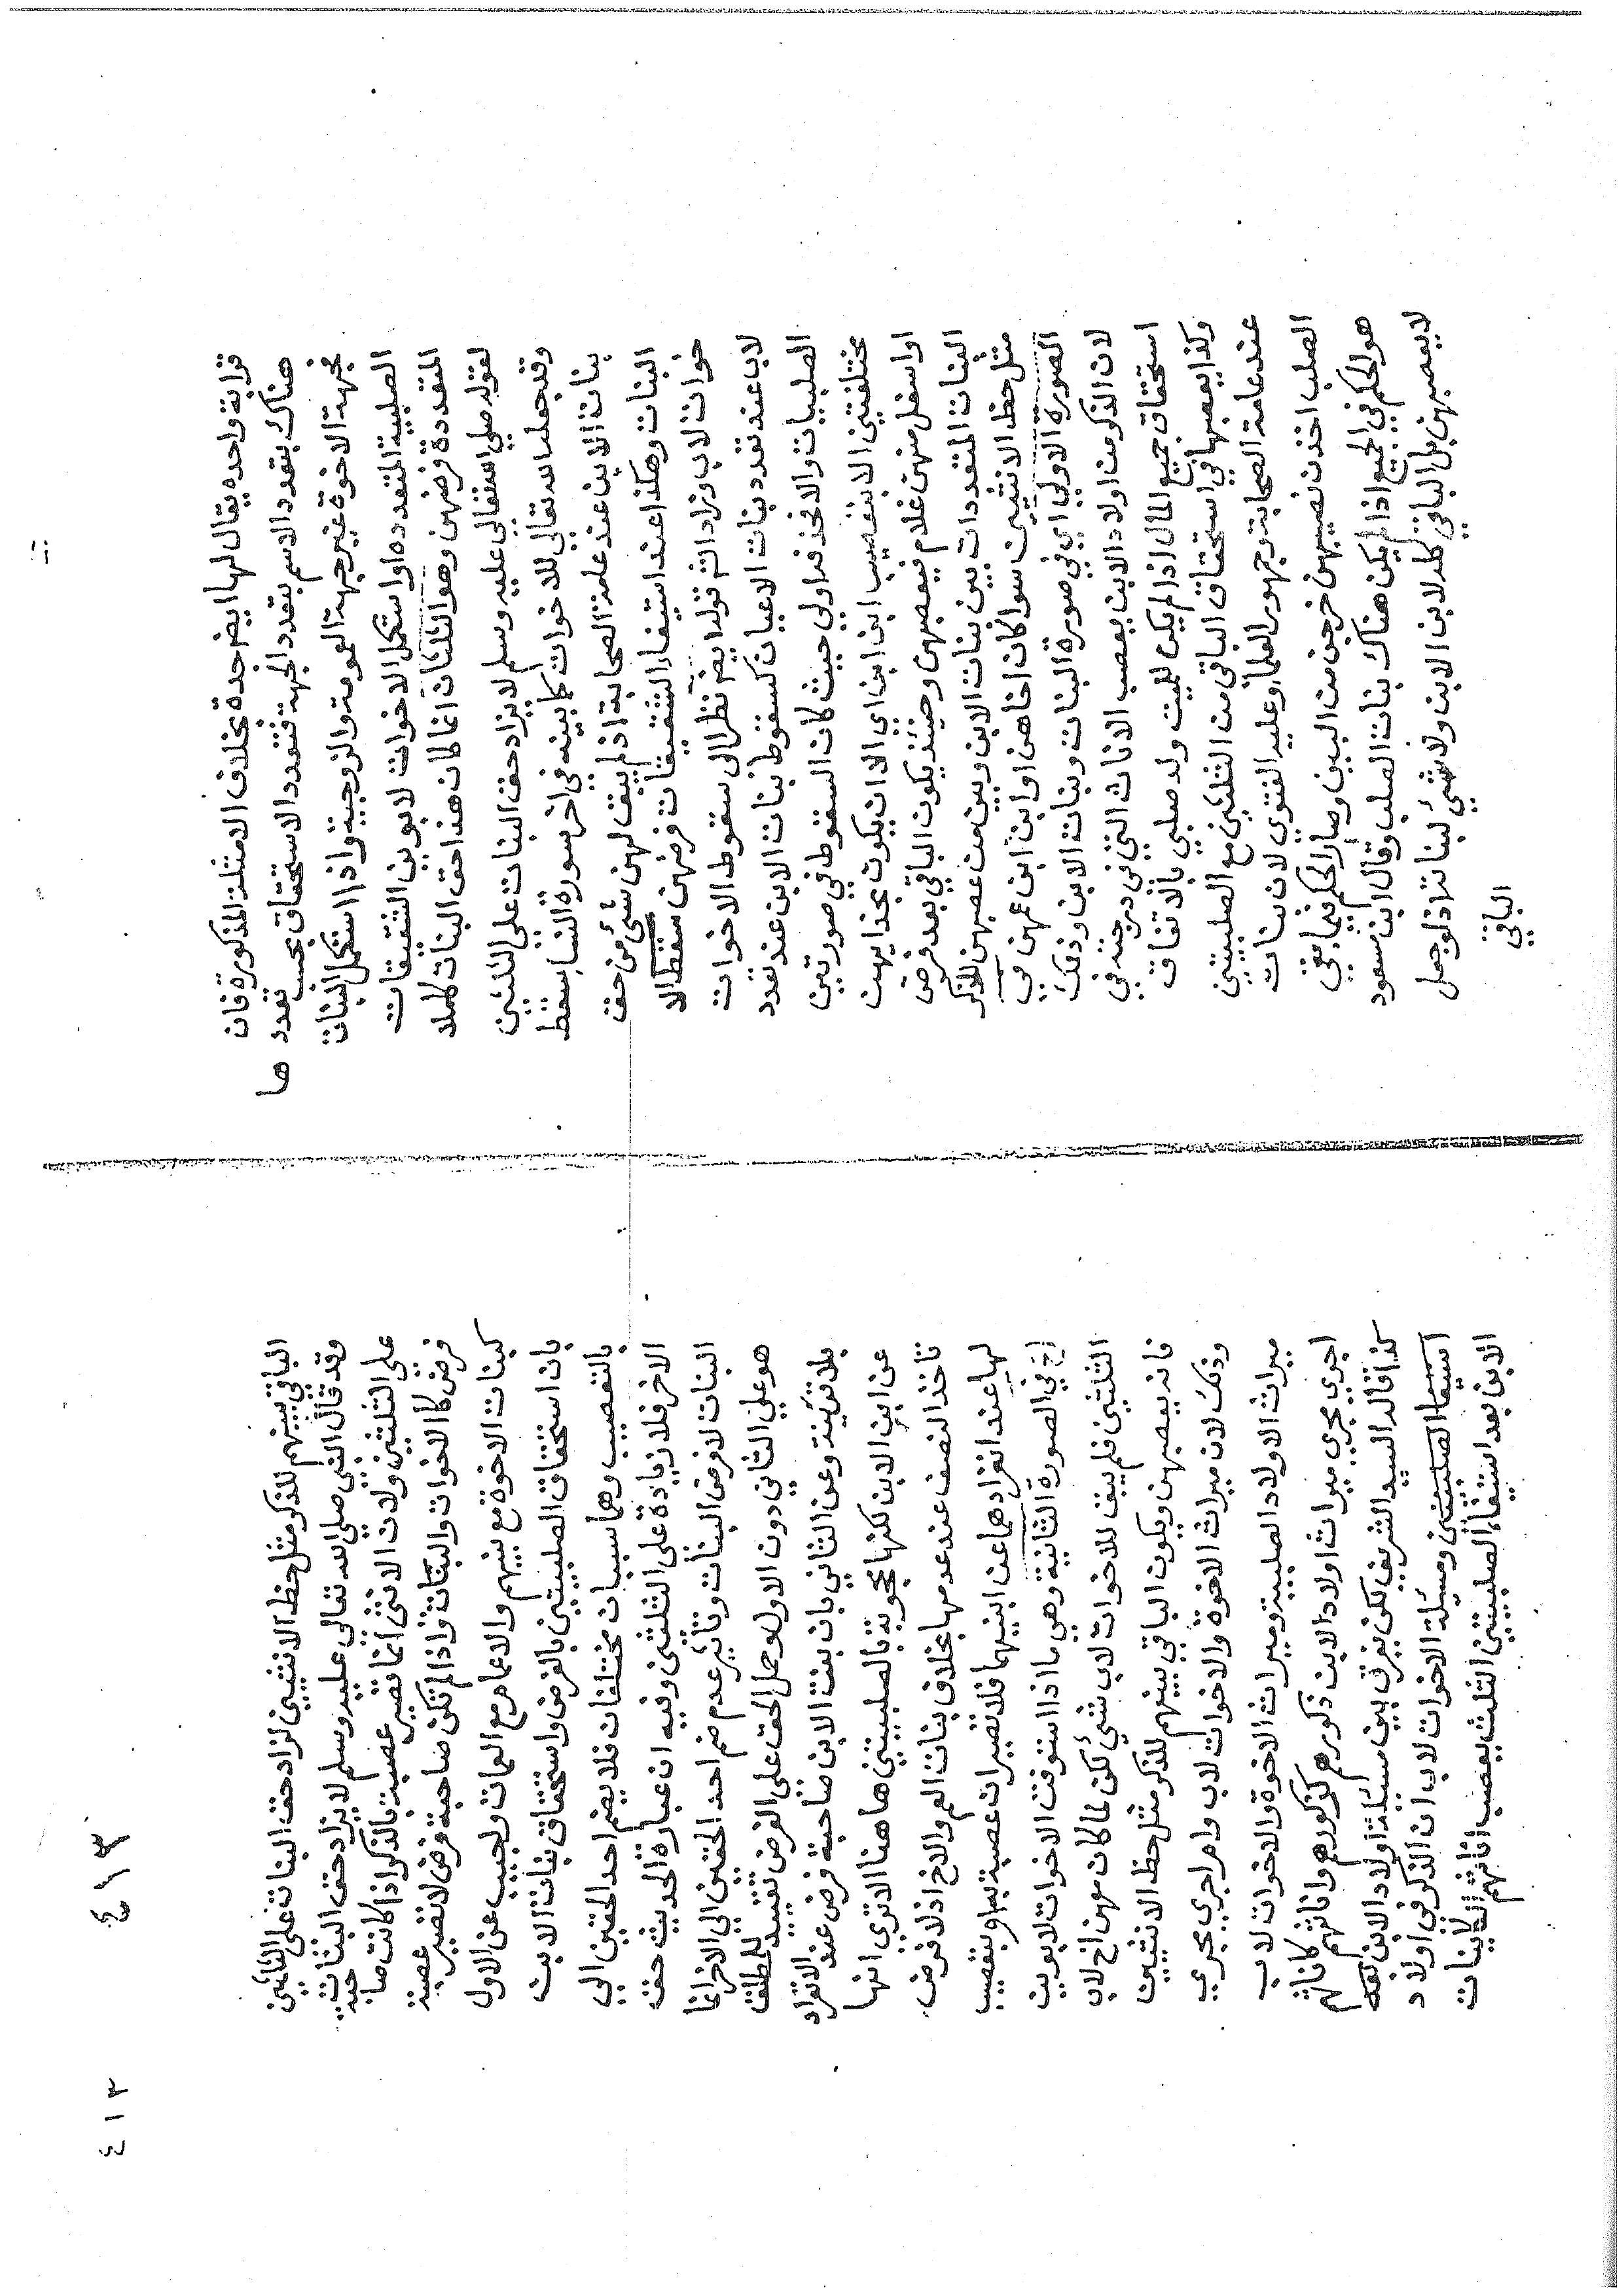 قرابة واحده يقال لها ايضا جدة بخلاف الامثلة المذكورة فان
هناك بتعدد الاسم بتعدد الجهة فتعدد الاستحقاق بحسب تعدد ها
فجهة الاخوة غير جهة العمومة والزوجية واذا استكمل البنات
الصلبية المتعدده او استكمل الاخوات لابوين الشقيقات
المتعددة فرضهن وهو الثلثان انما كان هذا حق البنات كملا
لقوله صلي الله تعالى عليه وسلم لا يزاد حق البنات على الثلثين
وقد جعله الله تعالى للاخوات كما بينه في اخر سورة النساء سقط
بنات الابن عند عامة الصحابة اذ لم يبق لهن شئ من حق
البنات وهكذا عند استيفاء الشقيقات فرضهن سقط الا
خوات لاب وزاد ثم قوله ايضا نظرا لى سقوط الاخوات
لاب عند تعدد بنات الاعيان كسقوط بنات الابن عند تعدد
الصلبيات والاخذ فداولي حيث كان السقوط في صورتين
مختلفتين الا بتعصيب ابن ابن اي الا ان يكون بحذايهن
او اسفل منهن غلام فيعصبهن وحينئذ يكون الباقي بعد فرض
البنات المتعددات بين بنات الابن وبين من عصبهن للذكر
مثل حظ الانثيين سوا كان اخاهن او ابن ابن عمهن في
الصورة الاولي اي في صورة البنات وبنات الابن وذلك
لان الذكر من اولاد الابن يعصب الاناث التي في درجته في
استحقاق جميع المال اذا لم يكن للميت ولد صلبي بالاتفاق
وكذا يعصبها في استحقاق الباقي من الثلثين مع الصلبيتين
عند عامة الصحابة وجمهور العلما وعليه الفتوي لان بنات
الصلب اخذن نصيبهن خرجن من البين وصار الحكم فيما بقي
هو الحكم في الجميع اذا لم يكن هناك بنات الصلب وقال ابن مسعود
لا يعصبهن بل الباقي كله لابن الابن ولا شئ لبناته اذ لو جعل
الباقي
الباقي بينهم للذكر مثل حظ الانثيين لزاد حق البنات على الثلثين
وقد قال النبي صلي الله تعالى عليه وسلم لا يزاد حق البنات
على الثلثين ولان الانثى انما تصير عصبة بالذكر اذا كانت صا حبة
فرض كالاخوات والبنات واذا لم تكن صاحبة فرض لا تصير عصبة
كبنات الاخوة مع بنيهم والاعمام مع العمات واجيب عن الاول
بان استحقاق الصلبيتين بالفرض واستحقاق بنات الابن
بالتعصيب وهما سببان مختلفان فلا يضم احد الحقين الي
الاخر فلا زيادة على الثلثين وفيه ان عبارة الحديث حق
البنات لا فرض البنات وتاثير عدم ضم احد الحقين الي الاخر انما
هو علي الثاني دون الاول وحمل الحق على الفرض تقييد للمطلق
بلا قرينة وعن الثاني بان بنت الابن صاحبة فرض عند الانفراد
عن ابن الابن لكنها محجوبة بالصلبيتين هاهنا الا تري انها
تاخذ النصف عند عدمها بخلاف بنات العم والاخ اذ لا فرض
لها عند انفرادهما عن ابنيهما فلا تصيران عصبة بهما او بتعصيب
اخ في الصورة الثانية وهي ما اذا استوفت الاخوات لابوين
الثلثين فلم يبق للاخوات لاب شئ لكن لما كان معهن اخ لاب
فانه يعصبهن ويكون الباقي بينهم للذكر مثل حظ الانثيين
وذلك لان ميراث الاخوة والاخوات لاب وام اجري مجري
ميراث الاولاد الصلبية وميراث الاخوة والاخوات لاب
اجري مجري ميراث اولاد الابن ذكورهم كذكورهم واناثهم كاناثهم
كذا قاله السيد الشريف لكن نفرق بين مسئلة اولاد الابن بعد
استيفا الصلبيتين ومسئلة الاخوات لاب ان الذكر في اولاد
الابن بعد استيفاء الصلبيتين الثلث يعصب اناثهم كبنات
٤١٣
٤١٣